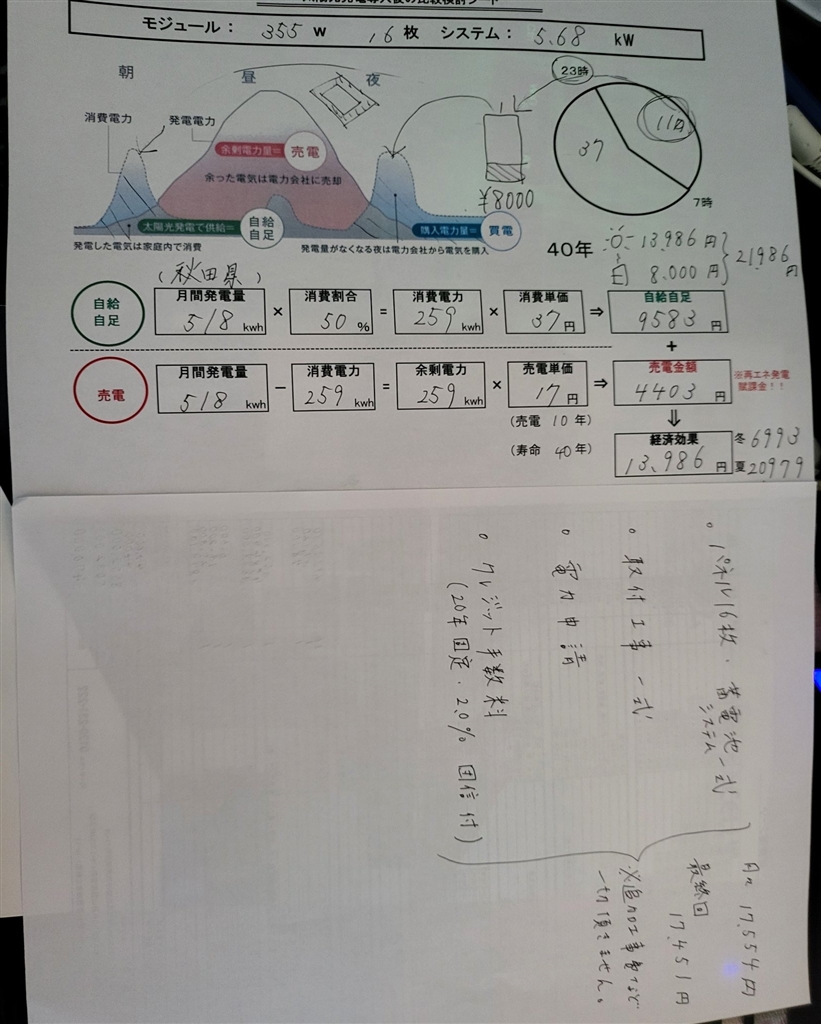 モジュール： 355 W 16 枚 システム： 5.68 kW
朝
昼
夜
23時
11円
37
7時
消費電力
発電電力
余剰電力量＝ 売電
余った電気は電力会社に売却
¥8000
太陽光発電で供給＝ 自給自足
購入電力量＝ 買電
発電した電気は家庭内で消費
発電量がなくなる夜は電力会社から電気を購入
40年
13,986 円
8.000 円
21,986 円
（秋田県）
自給自足
月間発電量 518 kwh × 消費割合 50 % = 消費電力 259 kwh × 消費単価 37 円 ⇒ 自給自足 9583 円
+
売電
月間発電量 518 kwh − 消費電力 259 kwh = 余剰電力 259 kwh × 売電単価 17 円 ⇒ 売電金額 4403 円
※再エネ発電賦課金！！
（売電 10 年）
⇓
（寿命 40 年）
経済効果 13,986 円
冬 6993
夏 20979
。パネル16枚．蓄電池システム一式
。取付工事一式
。電力申請
。クレジット手数料
（20年固定．2.0％ 団信付）
月々 17,554円
最終回 17,451円
※追加工事費など
一切頂きません。